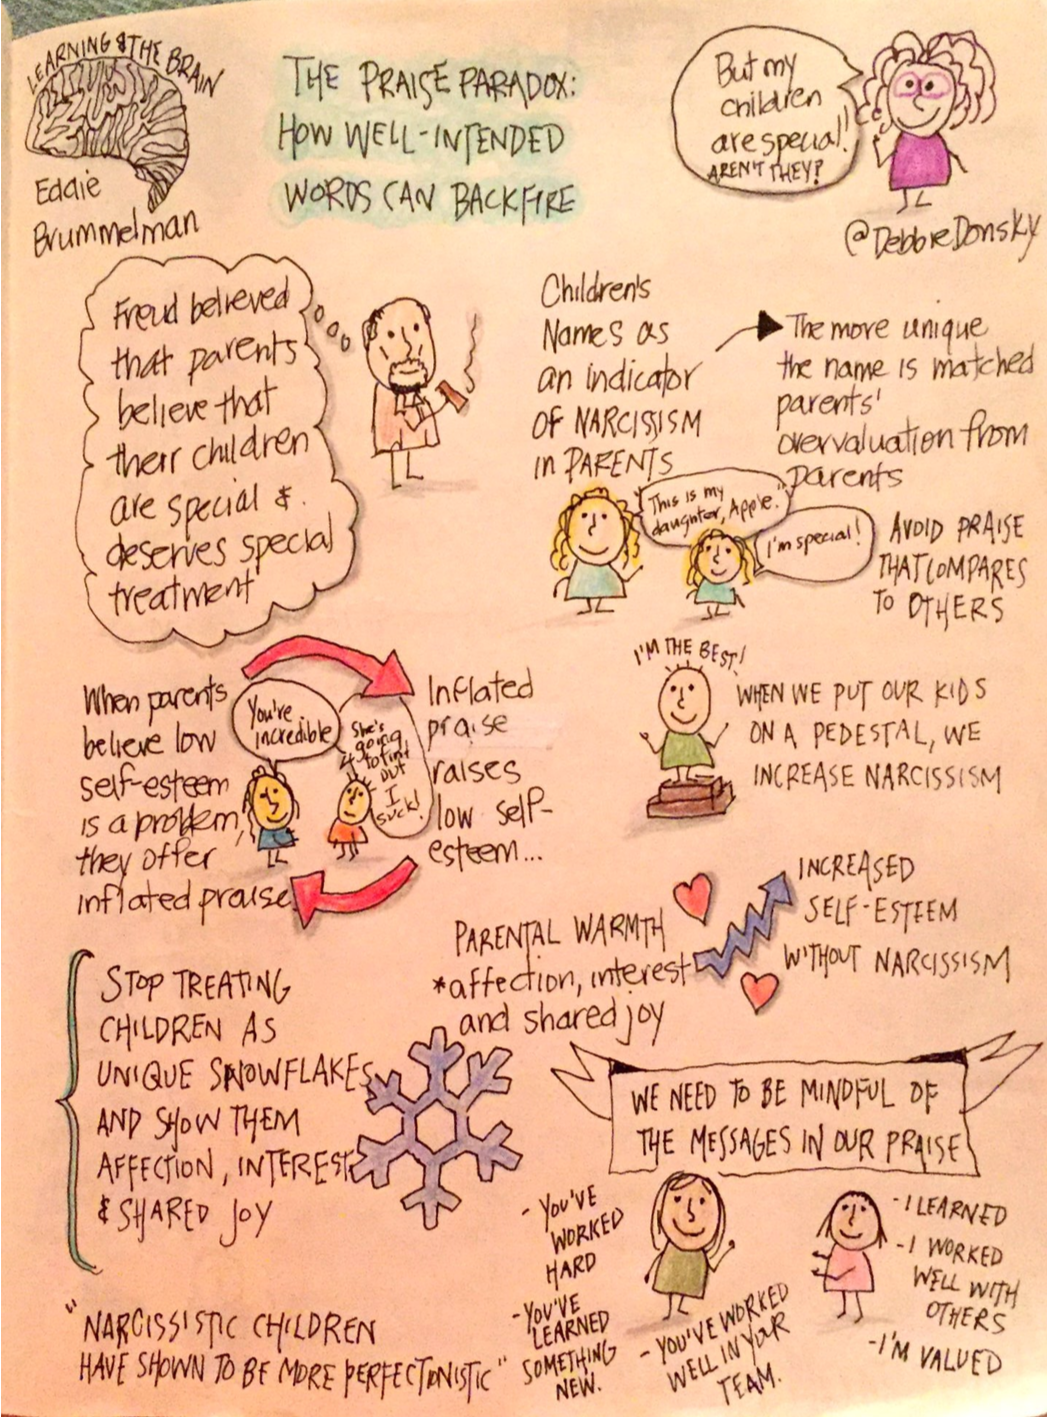 LEARNING & THE BRAIN
Eddie
Brummelman
THE PRAISE PARADOX:
HOW WELL-INTENDED
WORDS CAN BACKFIRE
But my
children
are special!
AREN'T THEY?
@DebbieDonsky
Freud believed
that parents
believe that
their children
are special &
deserves special
treatment
Children's
Names as
an indicator
OF NARCISSISM
in PARENTS
The more unique
the name is matched
parents'
overvaluation from
parents
"This is my
daughter, Apple."
I'm special!
AVOID PRAISE
THAT COMPARES
TO OTHERS
When parents
believe low
self-esteem
is a problem,
they offer
inflated praise.
You're
incredible
She's
going
to find
out
I
suck!
Inflated
praise
raises
low self-
esteem...
I'M THE BEST!
WHEN WE PUT OUR KIDS
ON A PEDESTAL, WE
INCREASE NARCISSISM
PARENTAL WARMTH
*affection, interest
and shared joy
INCREASED
SELF-ESTEEM
WITHOUT NARCISSISM
STOP TREATING
CHILDREN AS
UNIQUE SNOWFLAKES
AND SHOW THEM
AFFECTION, INTEREST
& SHARED JOY
WE NEED TO BE MINDFUL OF
THE MESSAGES IN OUR PRAISE
- YOU'VE
WORKED
HARD
- YOU'VE
LEARNED
SOMETHING
NEW.
- YOU'VE WORKED
WELL IN YOUR
TEAM.
- I LEARNED
- I WORKED
WELL WITH
OTHERS
- I'M VALUED
"NARCISSISTIC CHILDREN
HAVE SHOWN TO BE MORE PERFECTIONISTIC"